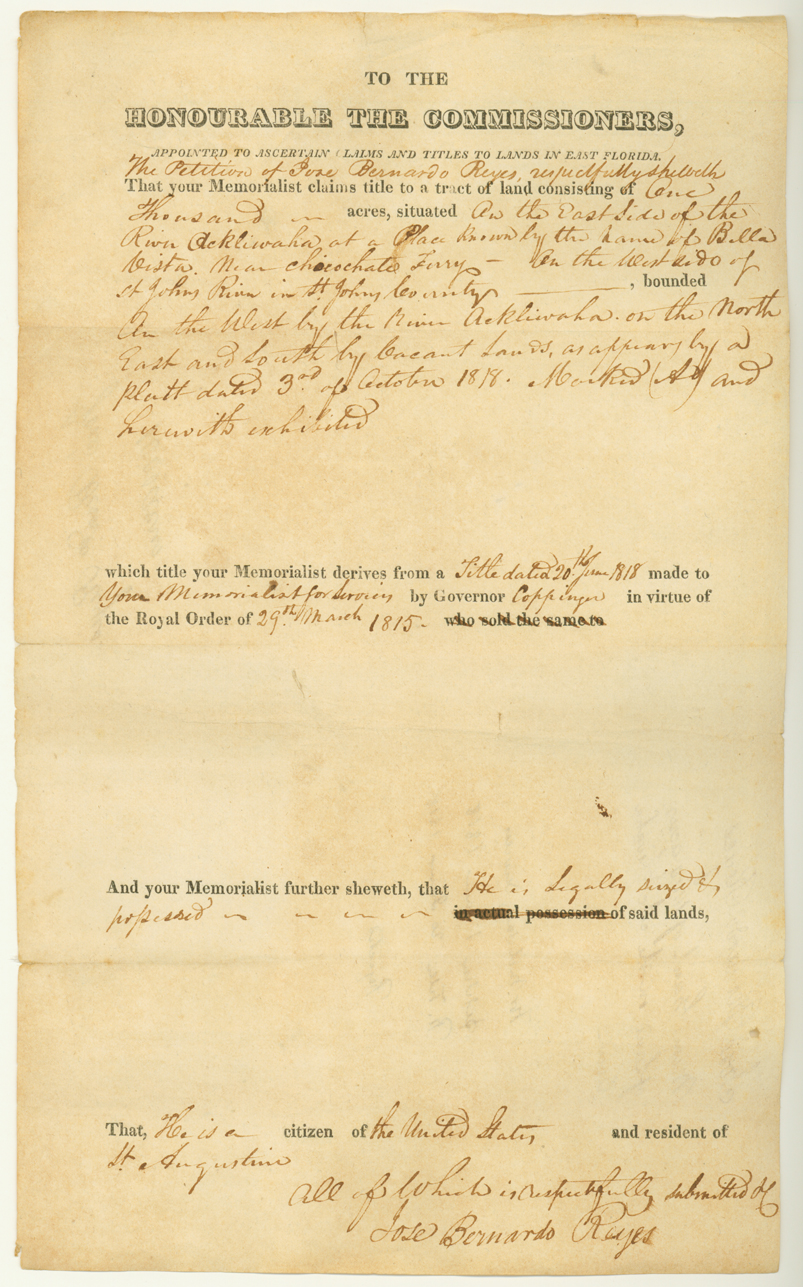 TO THE
HONOURABLE THE COMMISSIONERS,
APPOINTED TO ASCERTAIN CLAIMS AND TITLES TO LANDS IN EAST FLORIDA.
The Petition of Jose Bernardo Reyes, respectfully sheweth
That your Memorialist claims title to a tract of land consisting of One
Thousand acres, situated On the East Side of the
River Ackliwaha, at a Place Known by the name of Bella
Vista. Near Chicochate Ferry - On the West side of
St Johns River in St. Johns County ———, bounded
On the West by the River Ackliwaha. on the North
East and South by Vacant Lands, as appears by a
Platt dated 3rd of October 1818. Marked (A) and
herewith exhibited
which title your Memorialist derives from a Title dated 20th June 1818 made to
Your Memorialist for Services by Governor Coppinger in virtue of
the Royal Order of 29th March 1815- who sold the same to
And your Memorialist further sheweth, that He is Legally seized &
possessed in actual possession of said lands,
That, He is a citizen of the United States and resident of
St. Augustine
All of Which is respectfully submitted &c
Jose Bernardo Reyes